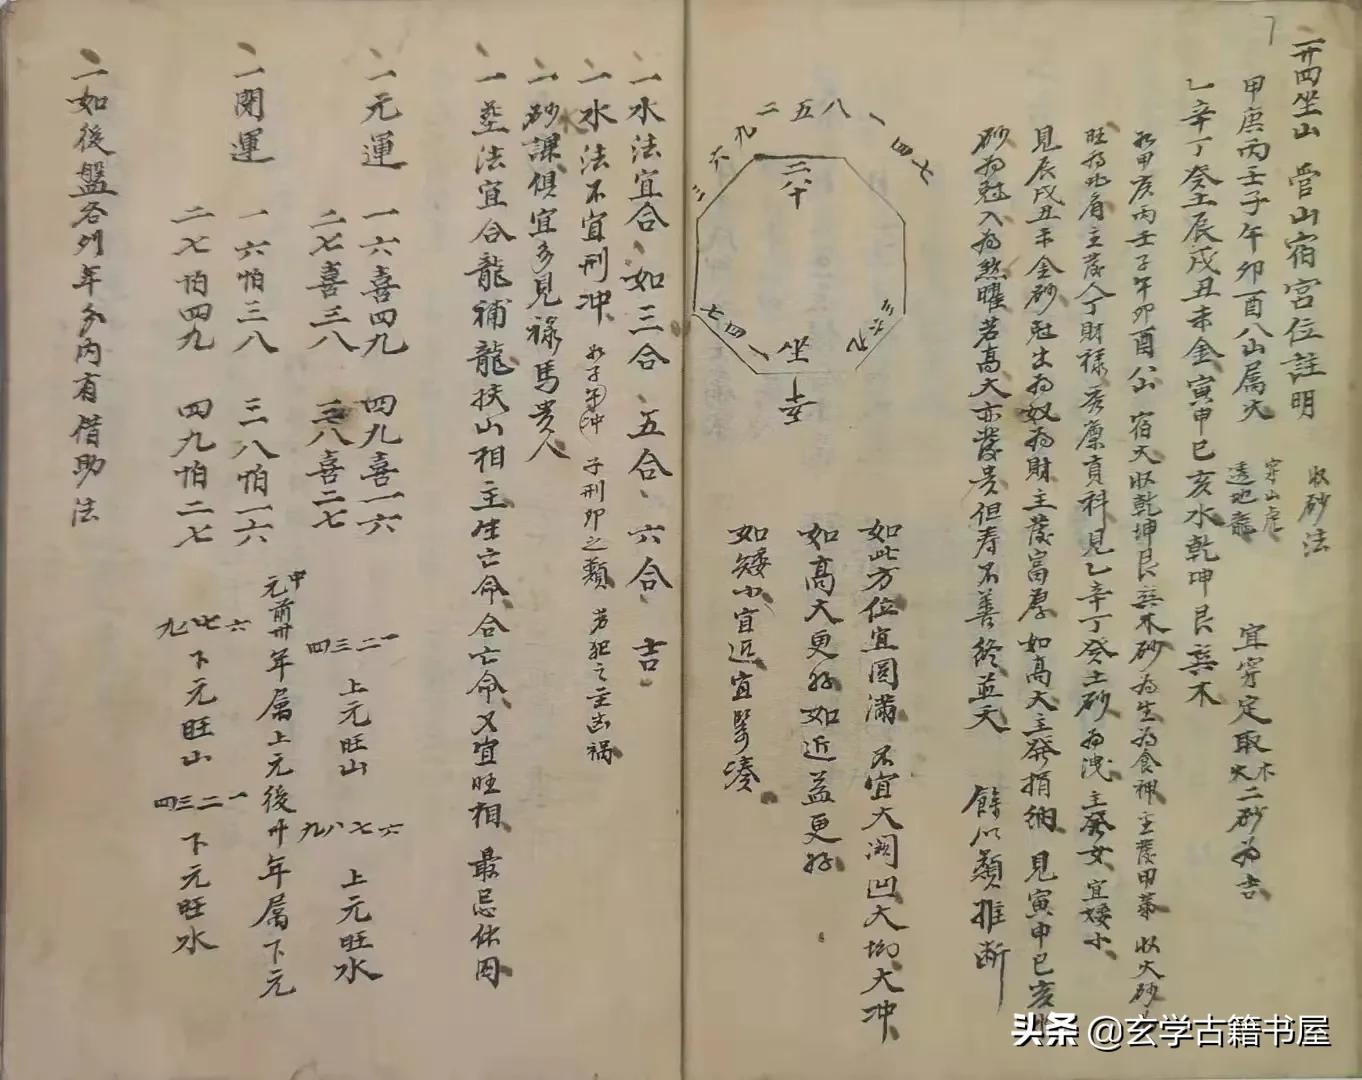 7
一廿四坐山 管山宿宮位註明 收砂法
甲庚丙壬子午卯酉八山属火 穿山虎 透地龍 宜穿定取木火二砂為吉
乙辛丁癸土辰戌丑未金寅申巳亥水乾坤艮巽木
丙壬子午卯酉 宿火收乾坤艮巽木砂為生為食神主發甲第 收火砂
旺為比肩主發人丁財禄 貢科見乙辛丁癸土砂為洩主發女宜矮小
見辰戌丑未金砂尅出為奴為財主發富厚如高大主發捐納 見寅申巳亥
砂為尅入為煞曜若高大亦發贵但寿不善終並夭 餘以類推断
二五八
一四七
三六九
坐
如此方位宜圆滿 不宜大濶凹大坳大冲
如高大更好如近益更好
如矮小宜近宜緊凑
一水法宜合 如三合 五合 六合 吉
一水法不宜刑冲 如子午冲 子刑卯之類 若犯之主凶禍
一砂課俱宜多見禄馬贵人
一塟法宜合龍補龍扶山相主生亡命合亡命又宜旺相 最忌休囚
一元運 一六喜四九 四九喜一六
二七喜三八 三八喜二七
一二三四 上元旺山 六七八九 上元旺水
一閑運 一六怕三八 三八怕一六
二七怕四九 四九怕二七
中元前卅年属上元後卅年属下元
六七八九 下元旺山 一二三四 下元旺水
一如後盤各列年多内有借助法
头条 @玄学古籍书屋